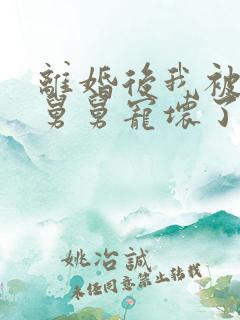 離婚後我被
舅舅寵壞了
姚冶誠
未任同意禁止转载